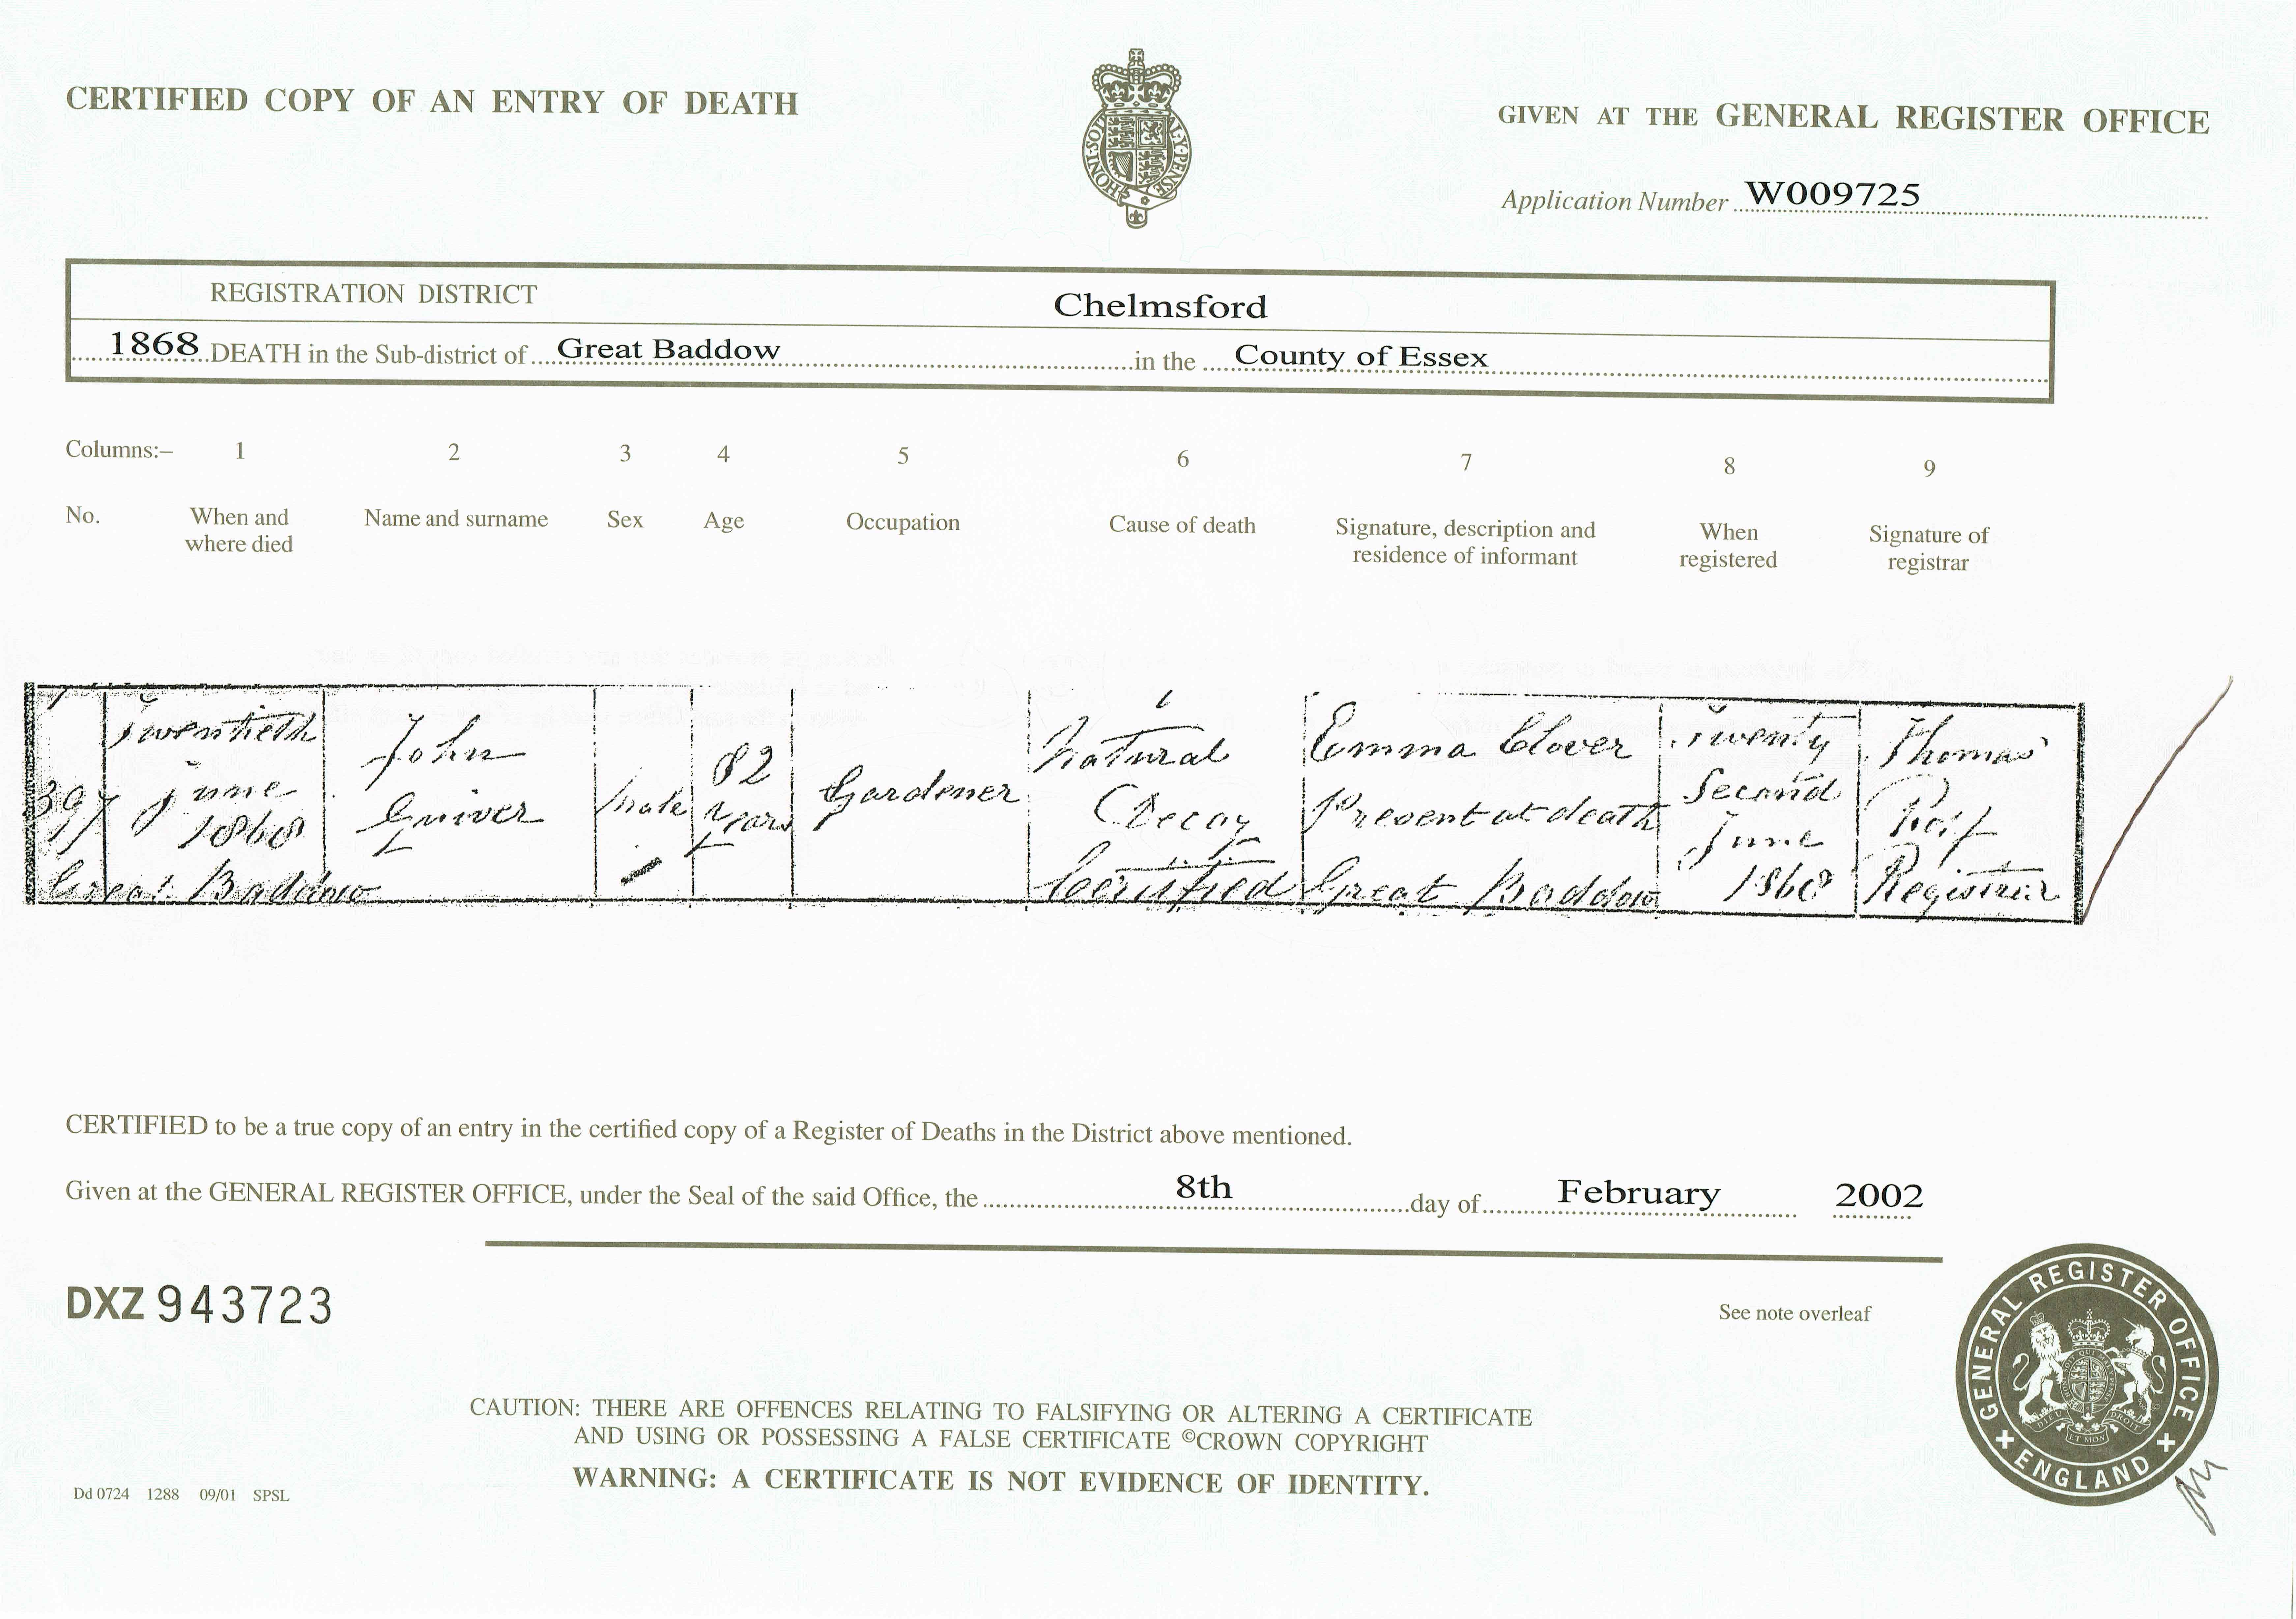 CERTIFIED COPY OF AN ENTRY OF DEATH
GIVEN AT THE GENERAL REGISTER OFFICE
HONI·SOIT AL·Y·PENSE
Application Number W009725
REGISTRATION DISTRICT Chelmsford
1868 DEATH in the Sub-district of Great Baddow in the County of Essex
Columns:– 1 2 3 4 5 6 7 8 9
No. When and where died Name and surname Sex Age Occupation Cause of death Signature, description and residence of informant When registered Signature of registrar
397
Twentieth
June
1868
Great Baddow
John
Guiver
Male
82
years
Gardener
Natural
Decay
Certified
Emma Clover
Present at death
Great Baddow
Twenty
Second
June
1868
Thomas
Registrar
CERTIFIED to be a true copy of an entry in the certified copy of a Register of Deaths in the District above mentioned.
Given at the GENERAL REGISTER OFFICE, under the Seal of the said Office, the 8th day of February 2002
DXZ 943723
See note overleaf
GENERAL REGISTER OFFICE
ENGLAND
CAUTION: THERE ARE OFFENCES RELATING TO FALSIFYING OR ALTERING A CERTIFICATE
AND USING OR POSSESSING A FALSE CERTIFICATE ©CROWN COPYRIGHT
WARNING: A CERTIFICATE IS NOT EVIDENCE OF IDENTITY.
Dd 0724 1288 09/01 SPSL